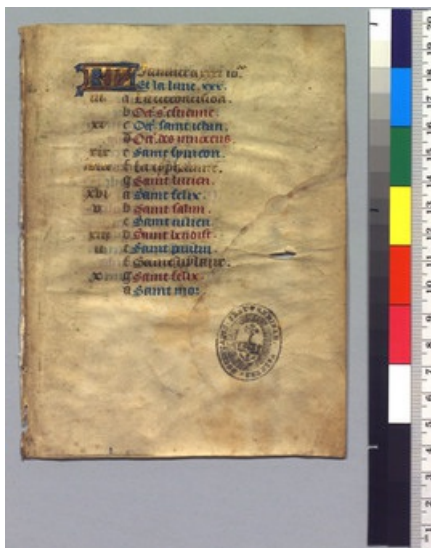 KL Januier a xxxi io.
Et la lune. xxx.
iii a La circoncision.
b Oct. s. estienne.
xi c Oct. saint iehan.
d Oct. des innocens.
xix e Saint symeon.
f La typhaine.
g Saint lucien.
xvi a Saint felix.
v b Saint
c Saint iulien.
xiii d Saint benoist.
ii e Saint
f Saint hylaire.
x g Saint felix.
a Saint mor